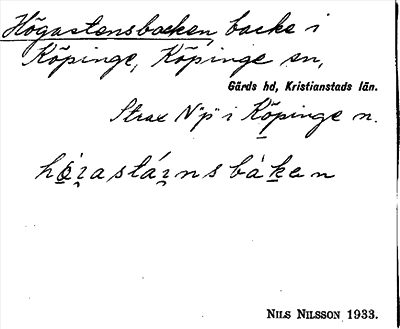 Högastensbacken, backe i
Köpinge, Köpinge sn,
Gärds hd, Kristianstads län.
Strax N "p" i Köpinge n.
NILS NILSSON 1933.